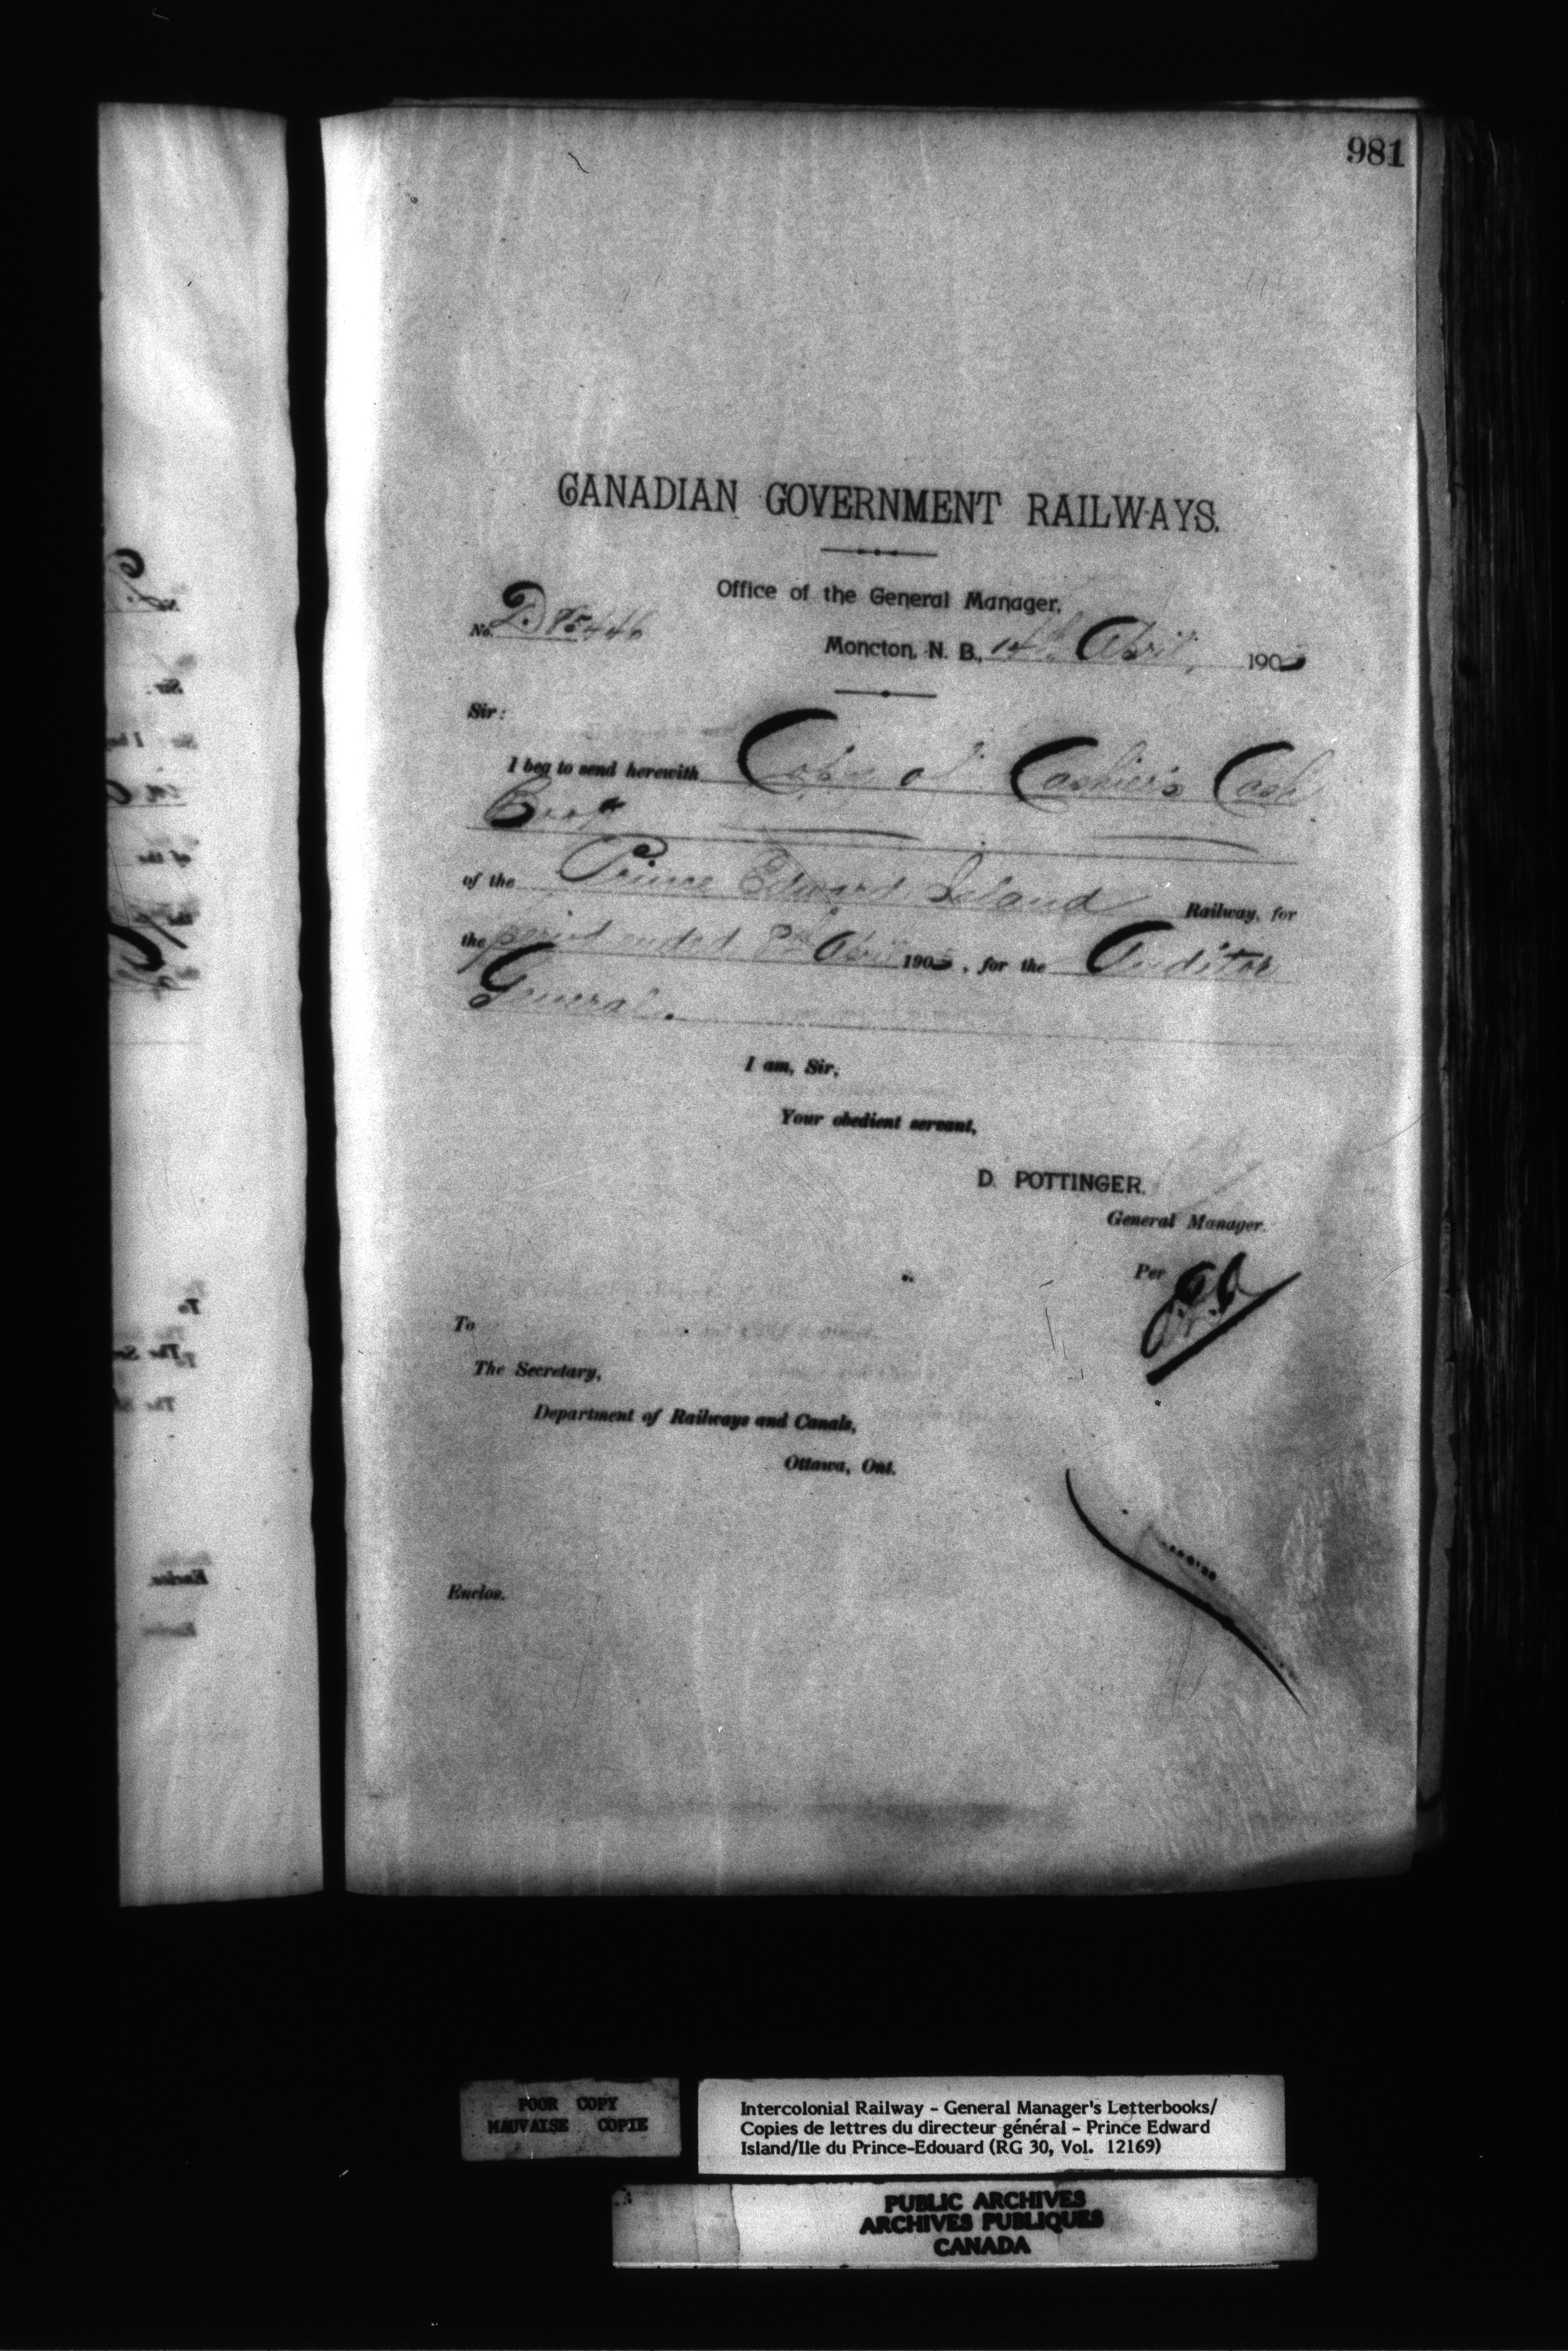 981
CANADIAN GOVERNMENT RAILWAYS.
Office of the General Manager,
No. D
Moncton, N. B., 14th April, 190
Sir:
I beg to send herewith Copy of Cashier's Cash
Book
of the Prince Edward Island Railway, for
the period ended 8th April 190 , for the Auditor
General.
I am, Sir,
Your obedient servant,
D. POTTINGER.
General Manager.
Per
To
The Secretary,
Department of Railways and Canals,
Ottawa, Ont.
Enclos.
POOR COPY
MAUVAISE COPIE
Intercolonial Railway - General Manager's Letterbooks/
Copies de lettres du directeur général - Prince Edward
Island/Ile du Prince-Edouard (RG 30, Vol. 12169)
PUBLIC ARCHIVES
ARCHIVES PUBLIQUES
CANADA